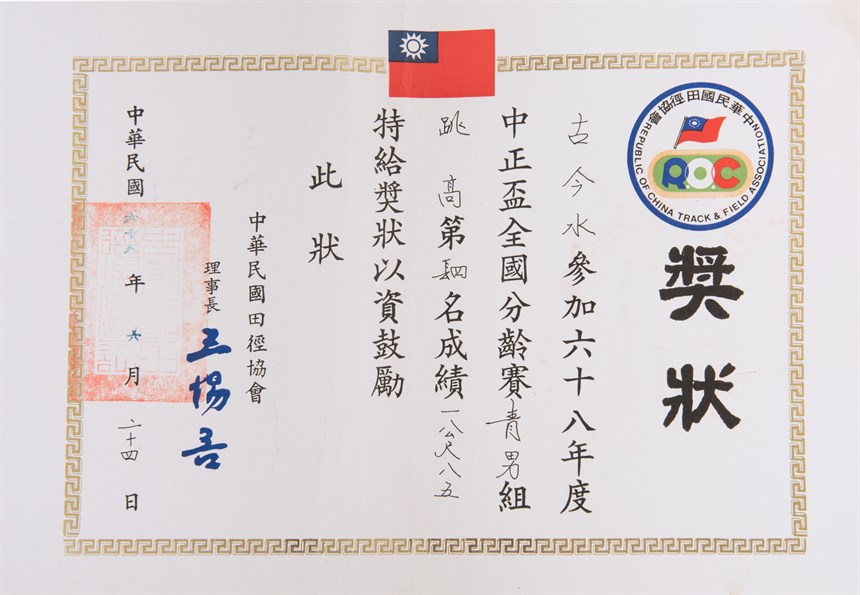 中華民國田徑協會
REPUBLIC OF CHINA TRACK & FIELD ASSOCIATION
R.O.C
獎狀
古今水參加六十八年度
中正盃全國分齡賽青男組
跳高第䦉名成績一公尺八五
特給獎狀以資鼓勵
此狀
中華民國田徑協會
理事長 王惕吾
中華民國六十八年六月二十四日